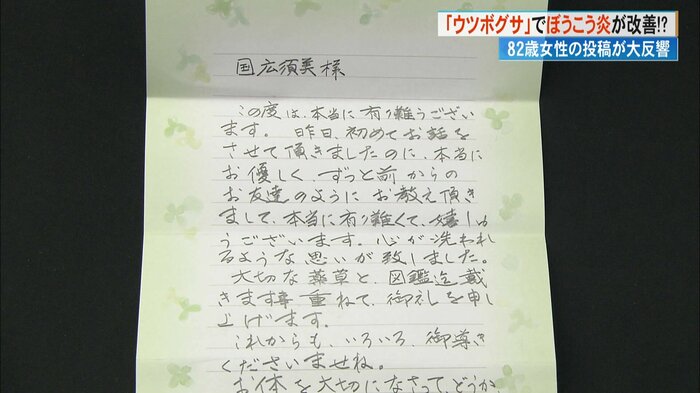 「ウツボグサ」でぼうこう炎が改善!?
82歳女性の投稿が大反響
国広須美様
この度は、本当に有り難うござい
ます。昨日、初めてお話を
させて頂きましたのに、本当に
お優しく、ずっと前からの
お友達のように お教え頂き
まして、本当に有り難くて、嬉しゅ
うございます。心が洗われ
るような思いが致しました。
大切な薬草と、図鑑迄戴
きます事 重ねて、御礼を申し
上げます。
これからも、いろいろ、御導き
くださいませね。
お体を大切になさって、どうか、